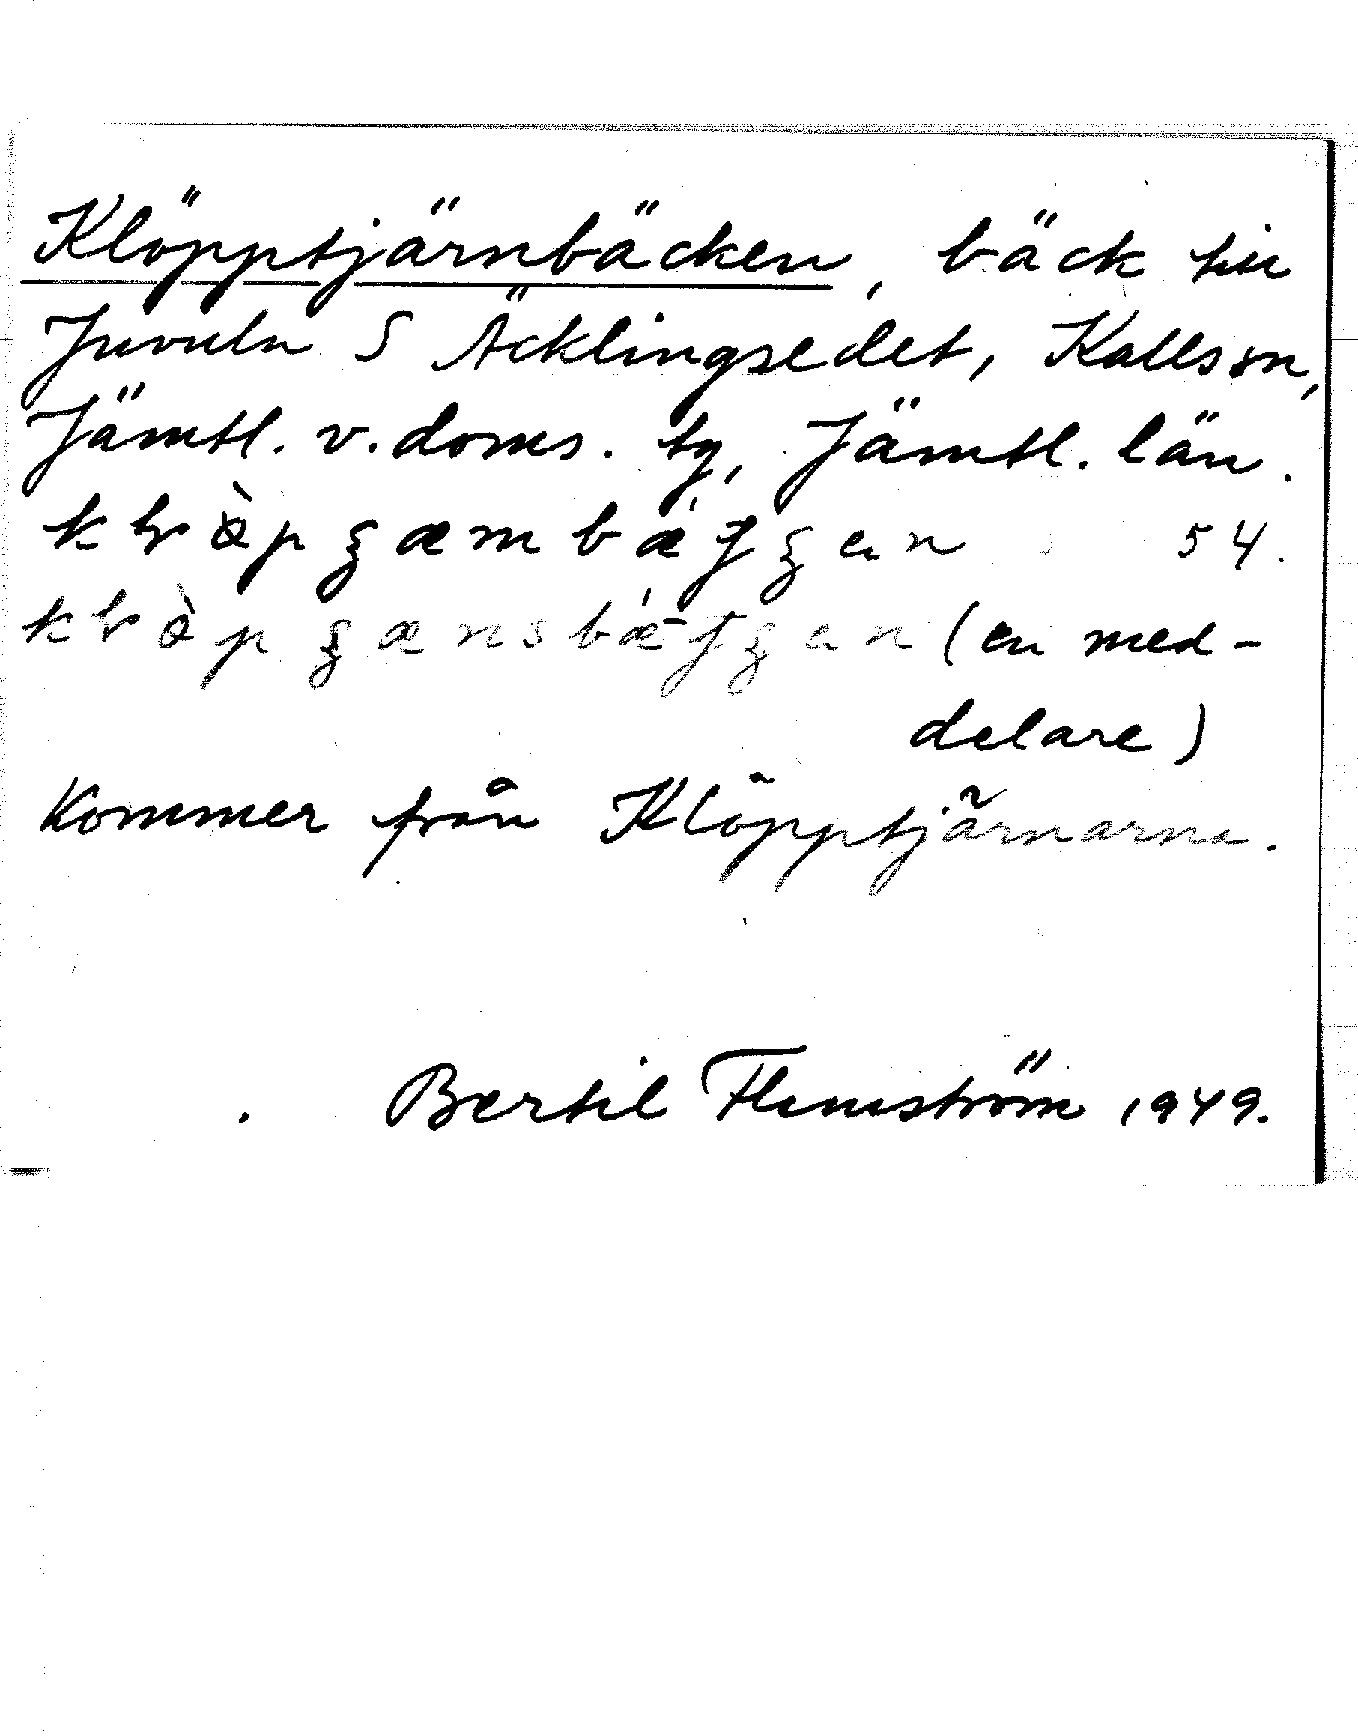 Klöpptjärnbäcken, bäck till
Juvuln S Äcklingsedet, Kallssn,
Jämtl. v. doms. tg, Jämtl. län.
54.
(en med-
delare)
Kommer från Klöpptjärnarna.
Bertil Flemström 1949.